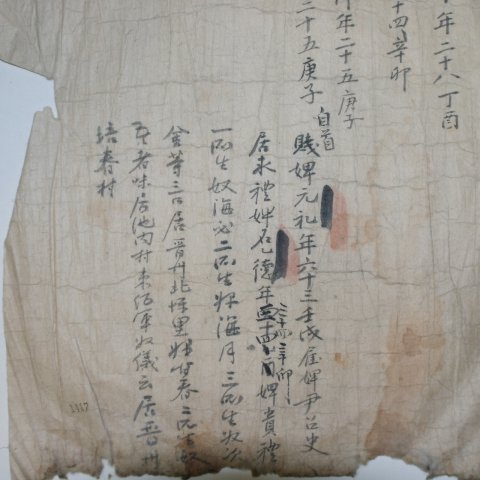 年二十八丁酉
十四辛卯
年二十五庚子
二十五庚子
自首
賤婢元礼年六十三壬戌雇婢尹召史
居末禮婢名乙德年三十四辛卯婢貴禮
一所生奴海必二所生婢海月三所生奴次
金等三口居晋州北坪里婢甘春二所生奴
者味居池內村束伍軍奴儀云居晋州
培養村
1117